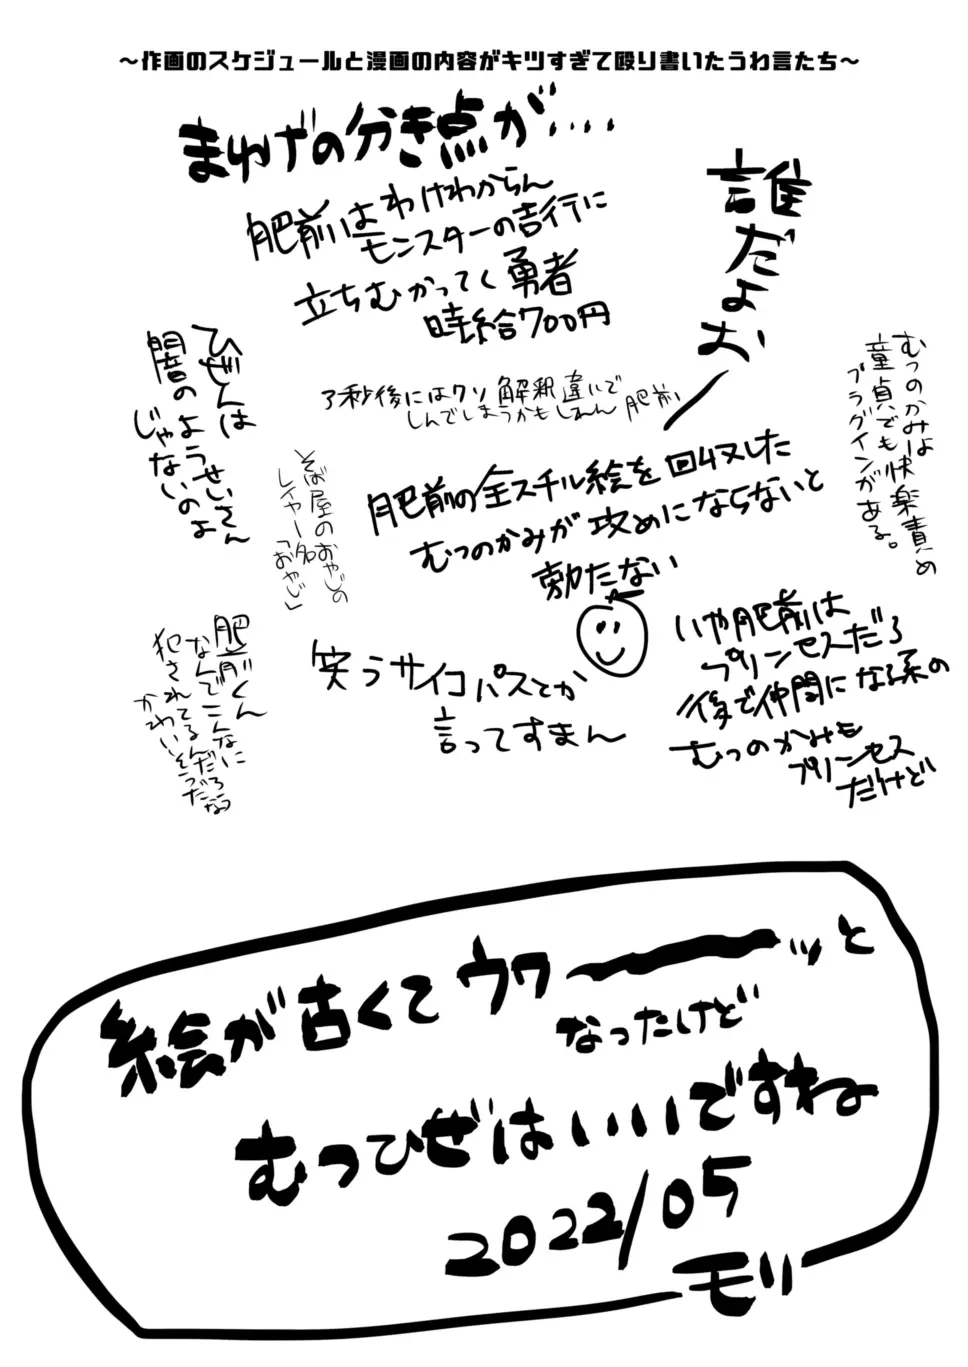 ～作画のスケジュールと漫画の内容がキツすぎて殴り書いたうわ言たち～
まゆげの分き点が....
誰だよお
肥前はわけわからん
モンスターの吉行に
立ちむかってく勇者
時給700円
むつのかみは
童貞でも快楽責め
プラグインがある。
ひぜんは
闇のようせいさん
じゃないのよ
3秒後にはクソ解釈違いで
しんでしまうかもしれん 肥前
そば屋のおやじの
レイヤー名
「おやじ」
肥前の全スチル絵を回収した
むつのかみが攻めにならないと
勃たない
いや肥前は
プリンセスだろ
後で仲間になる系の
むつのかみも
プリンセス
だけど
肥前くん
なんでこんなに
犯されてるんだろう
かわいそうだな
笑うサイコパスとか
言ってすまん
絵が古くてウワーーッと
なったけど
むつひぜはいいですね
2022/05
モリ